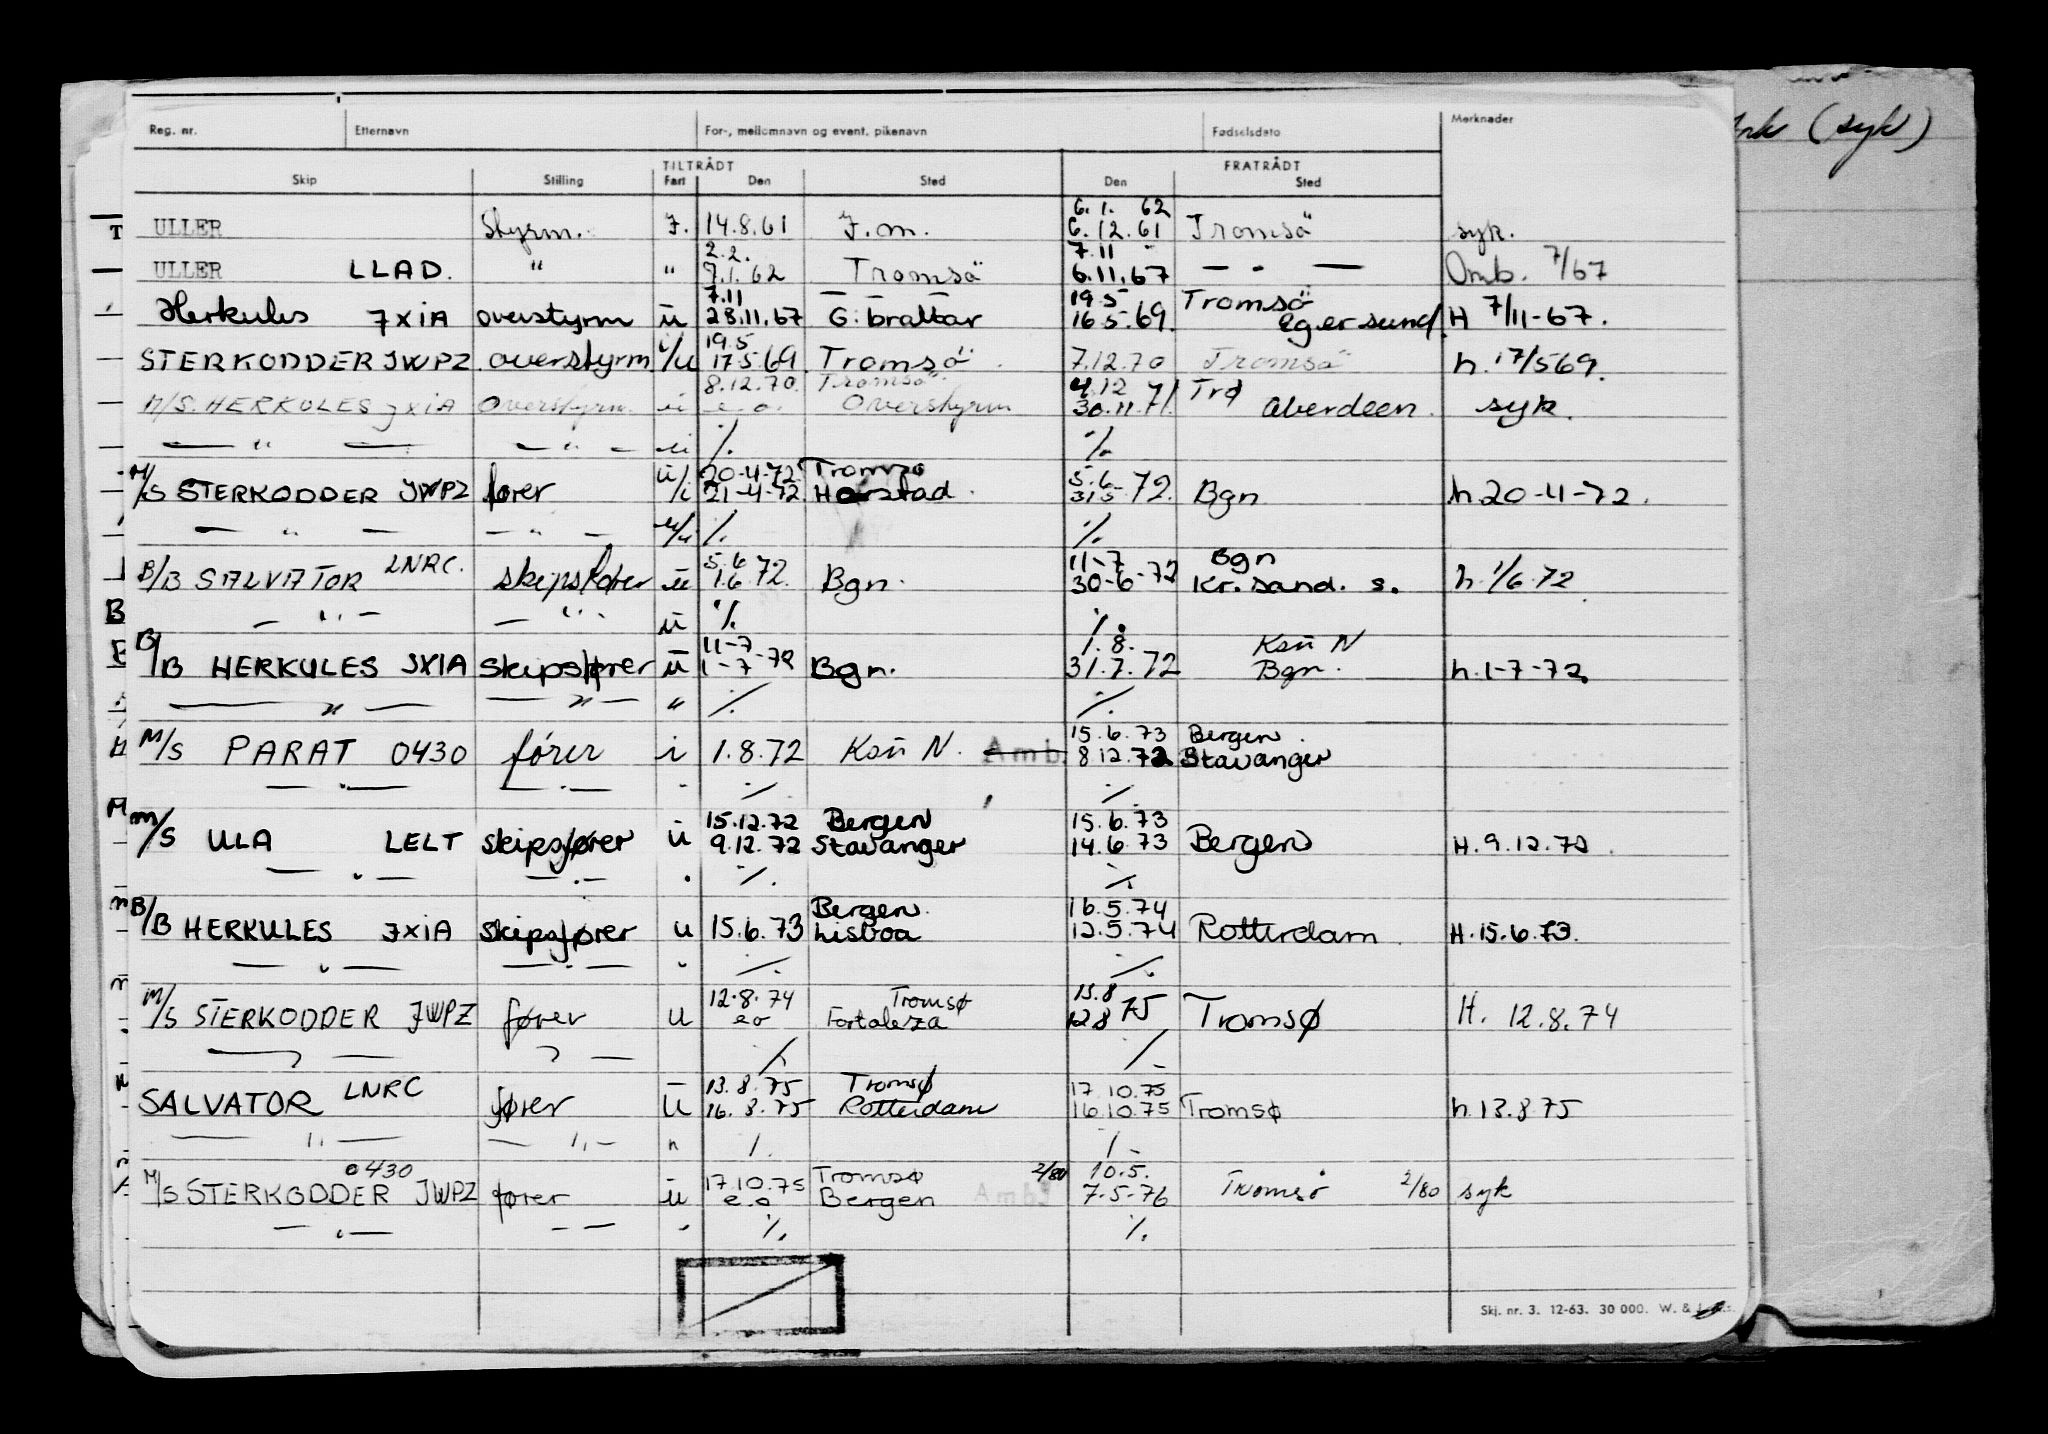 Reg. nr. Etternavn For-, mellomnavn og event. pikenavn Fødselsdato Merknader
(syk)
TILTRÅDT FRATRÅDT
Skip Stilling Fart Den Sted Den Sted
6. 1. 62
ULLER Styrm. J. 14.8.61 J.m. 6.12.61 Tromsö syk.
2.2. 7.11
ULLER LLAD. " " 9.1.62 Tromsö 6.11.67 — " — Omb. 7/67
7.11 19.5 Tromsö
Herkules JXIA overstyrm ü 28.11.67 Gibraltar 16.5.69. Egersund H 7/11-67.
19.5
STERKODDER JWPZ overstyrm i/u 17.5.69 Tromsö 7.12.70 Tromsö h. 17/569.
8.12.70. Tromsö 4.12 Trø
M/S. HERKULES JXIA Overstyrm. ü e.o. Overstyrm 30.11.71. Aberdeen. syk.
— " — — " — ü ·/. ·/.
ü 20-4-72 Tromsø 5.6
M/S STERKODDER JWPZ fører /i 21-4-72 Harstad. 31.5.72. Bgn h.20-4-72.
— " — — " — u/i ·/. ·/.
LNRC. 5.6 11-7 Bgn
B/B SALVATOR skipsfører ü 1.6.72. Bgn. 30-6-72 Kr.sand. s. h. 1/6.72
— " — — " ü ·/. ·/.
11-7 1.8. Ksü N
B/B HERKULES JXIA Skipsfører ü 1-7-72 Bgn. 31.7.72 Bgn. h.1-7-72.
— " — — " — " ·/. ·/.
15.6.73 Bergen.
M/S PARAT 0430 fører i 1.8.72 Ksü N. Amb. 8.12.72 Stavanger
— " — — " — " ·/. ·/.
15.12.72 Bergen 15.6.73
m/S ULA LELT skipsfører ü 9.12.72 Stavanger 14.6.73 Bergen H.9.12.72.
— " — — " — " ·/. ·/.
Bergen. 16.5.74
B/B HERKULES JXIA Skipsfører u 15.6.73 Lisboa 12.5.74 Rotterdam. H.15.6.73.
— " — — " — " ·/. ·/.
12.8.74 Tromsø 13.8
M/S STERKODDER JWPZ fører u e o Fortaleza 12.8 75 Tromsø H. 12.8.74
— " — " — ·/. ·/.
LNRC 13.8.75 Tromsø 17.10.75
SALVATOR fører ü 16.8.75 Rotterdam 16.10.75 Tromsø h.13.8.75
— " — — " — "
0430 17.10.75 Tromsø 2/80 10.5.
M/S STERKODDER JWPZ fører ü e.o Bergen Amb 7.5-76 Tromsø 2/80 syk
— " — — — " ·/. ·/.
Skj. nr. 3. 12-63. 30 000. W. &